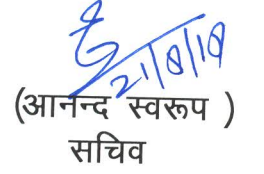 21/8/18
(आनन्द स्वरूप )
सचिव